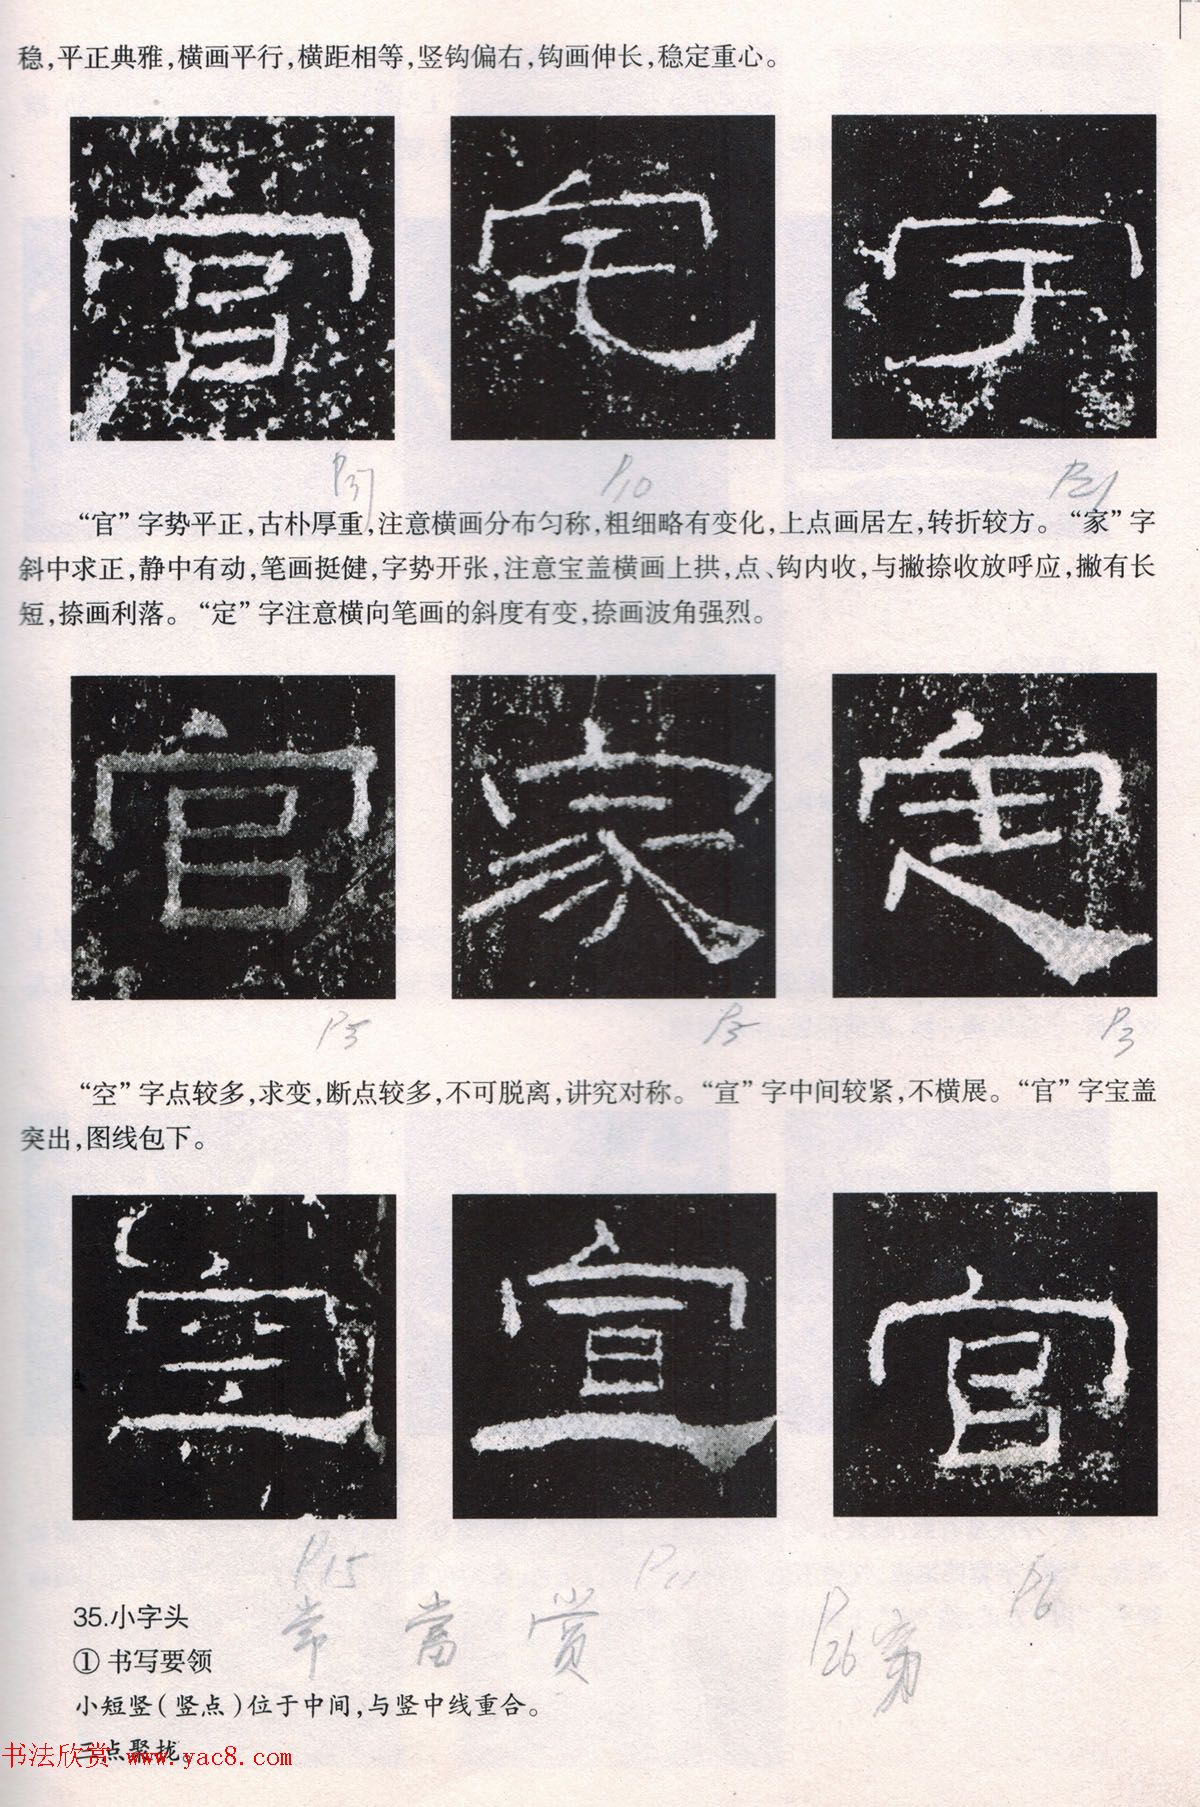 稳，平正典雅，横画平行，横距相等，竖钩偏右，钩画伸长，稳定重心。
官 宅 字
P37 P10 P21
“官”字势平正，古朴厚重，注意横画分布匀称，粗细略有变化，上点画居左，转折较方。“家”字
斜中求正，静中有动，笔画挺健，字势开张，注意宝盖横画上拱，点、钩内收，与撇捺收放呼应，撇有长
短，捺画利落。“定”字注意横向笔画的斜度有变，捺画波角强烈。
官 家 定
P5 P5 P3
“空”字点较多，求变，断点较多，不可脱离，讲究对称。“宣”字中间较紧，不横展。“官”字宝盖
突出，图线包下。
空 宣 官
P15 P11 P6
35.小字头
常 當 赏 P26
① 书写要领
小短竖（竖点）位于中间，与竖中线重合。
三点聚拢。
书法欣赏 www.yac8.com